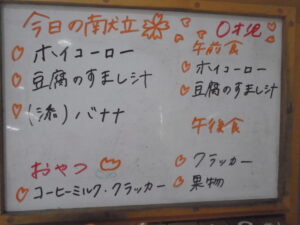 今日の献立
ホイコーロー
豆腐のすまし汁
(添) バナナ
おやつ
コーヒーミルク・クラッカー
0才児
午前食
ホイコーロー
豆腐のすまし汁
午後食
クラッカー
果物